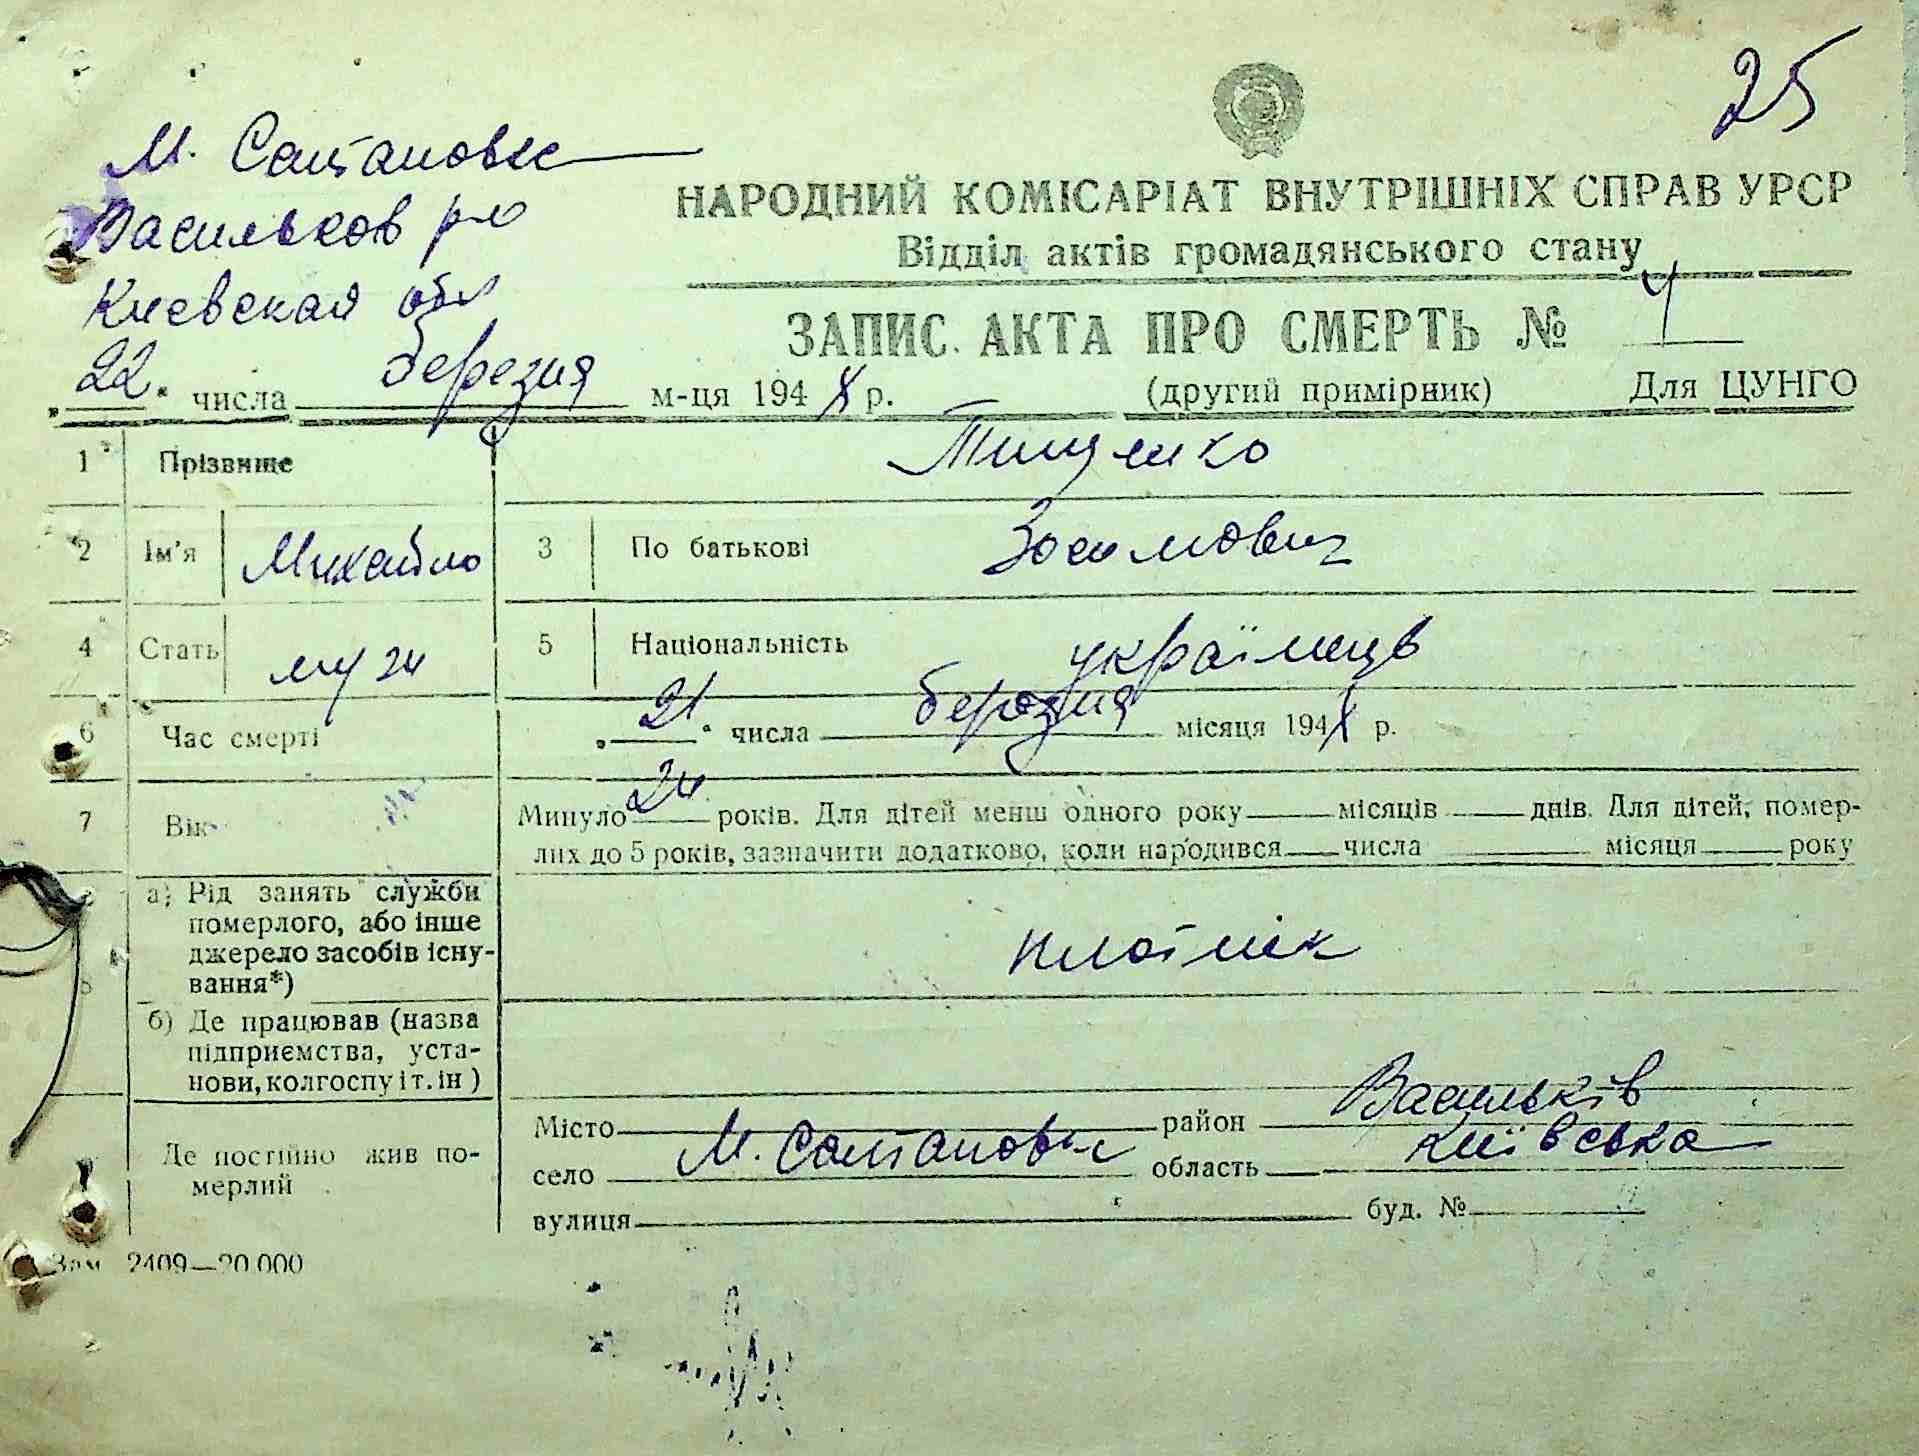 25
М. Солтановка
Васильков р-о
Киевская обл
НАРОДНИЙ КОМІСАРІАТ ВНУТРІШНІХ СПРАВ УРСР
Відділ актів громадянського стану
ЗАПИС АКТА ПРО СМЕРТЬ № 4
„22" числа березня м-ця 194 р. (другий примірник) Для ЦУНГО
1 Прізвище Тищенко
2 Ім'я Михайло 3 По батькові Зосимович
4 Стать муж 5 Національність українець
6 Час смерті „21" числа березня місяця 194 р.
7 Вік Минуло 24 років. Для дітей менш одного року місяців днів. Для дітей, помер-
лих до 5 років, зазначити додатково, коли народився числа місяця року
а) Рід занять служби
померлого, або інше
джерело засобів існу-
вання*)
плотнік
б) Де працював (назва
підприємства, уста-
нови, колгоспу і т. ін)
Де постійно жив по-
мерлий
Місто район Васильків
село М. Солтановка область Київська
вулиця буд. №
Зам. 2409—20.000